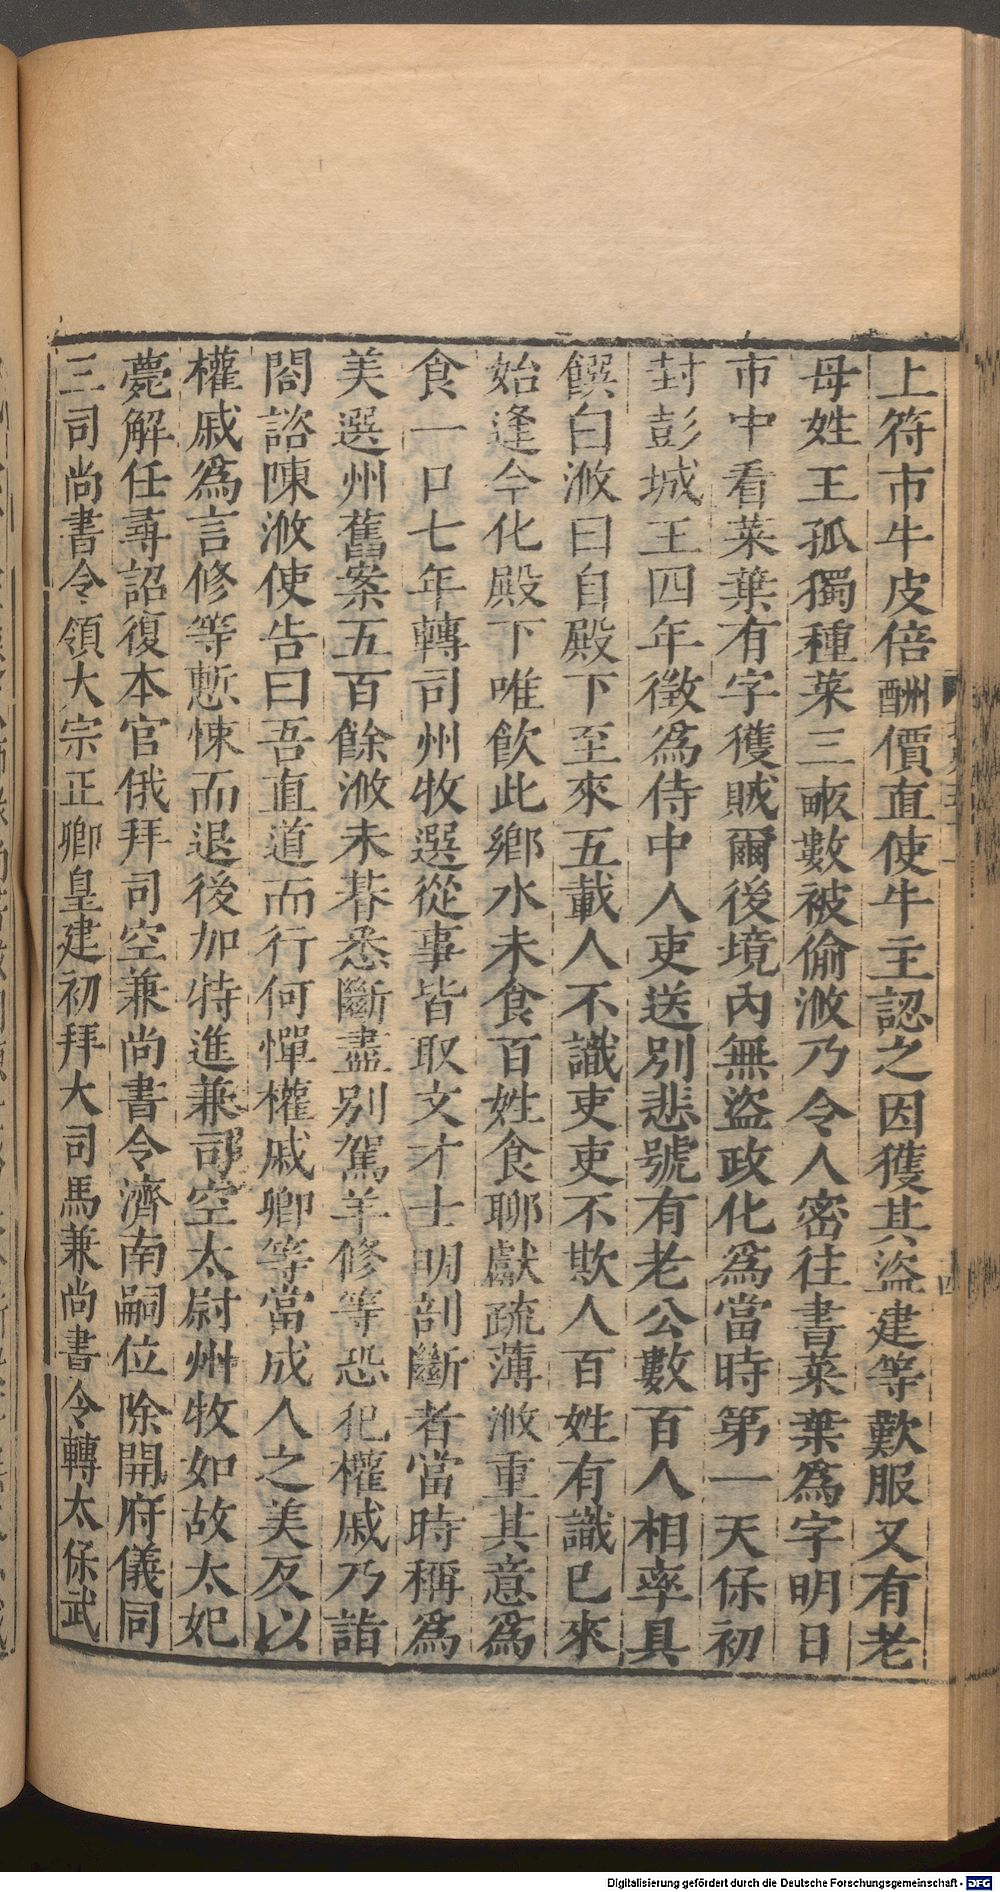 上符市牛皮倍酬價直使牛主認之因獲其盜建等歎服又有老
母姓王孤獨種菜三畝數被偷浟乃令人密往書菜葉爲字明日
市中看菜葉有字獲賊爾後境內無盜政化爲當時第一天保初
封彭城王四年徵爲侍中人吏送別悲號有老公數百人相率具
饌白浟曰自殿下至來五載人不識吏吏不欺人百姓有識已來
始逢今化殿下唯飲此鄉水未食百姓食聊獻疏薄浟重其意爲
食一口七年轉司州牧選從事皆取文才士明剖斷者當時稱爲
美選州舊案五百餘浟未朞悉斷盡別駕羊修等恐犯權戚乃詣
閤諮陳浟使告曰吾直道而行何憚權戚卿等當成人之美反以
權戚爲言修等慙悚而退後加特進兼司空太尉州牧如故太妃
薨解任尋詔復本官俄拜司空兼尚書令濟南嗣位除開府儀同
三司尚書令領大宗正卿皇建初拜大司馬兼尚書令轉太保武
Digitalisierung gefördert durch die Deutsche Forschungsgemeinschaft - DFG